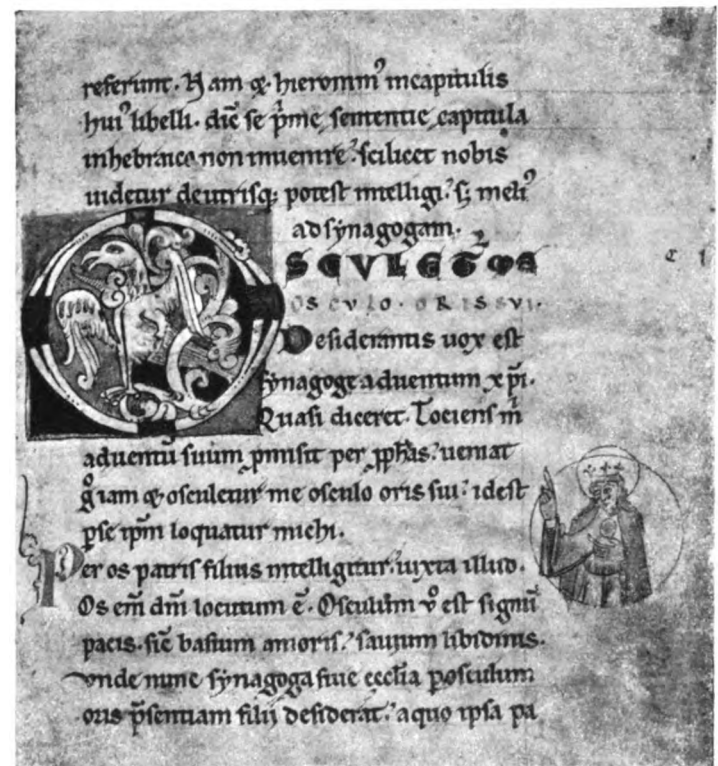 referunt. Nam & hieronim᾽ incapitulis
hui᾽ libelli. dič se p̄me sententie capitula
inhebraico non inuenire. scilicet nobis
uidetur deutrisq; potest intelligi. s; meli᾽
ad synagogam.
OSCVLET᾽ ME
OSCVLO. ORIS SVI.
Desiderantis uox est
synagoge aduentum xp̄i.
Quasi diceret. Tociens m̄
aduentū suum p̄misit per ꝓphas. ueniat
& osculetur me osculo oris sui. idest
ꝑse ip̄m loquatur michi.
Per os patris filius intelligitur. iuxta illud.
Os em̄ dn̄i locutum ē. Osculum v̊ est signū
pacis. sic̄ basium amoris. sauium libidinis.
vnde nunc synagoga siue ecc̄lia ꝑosculum
oris p̄sentiam filij desiderat. aquo ipsa pa